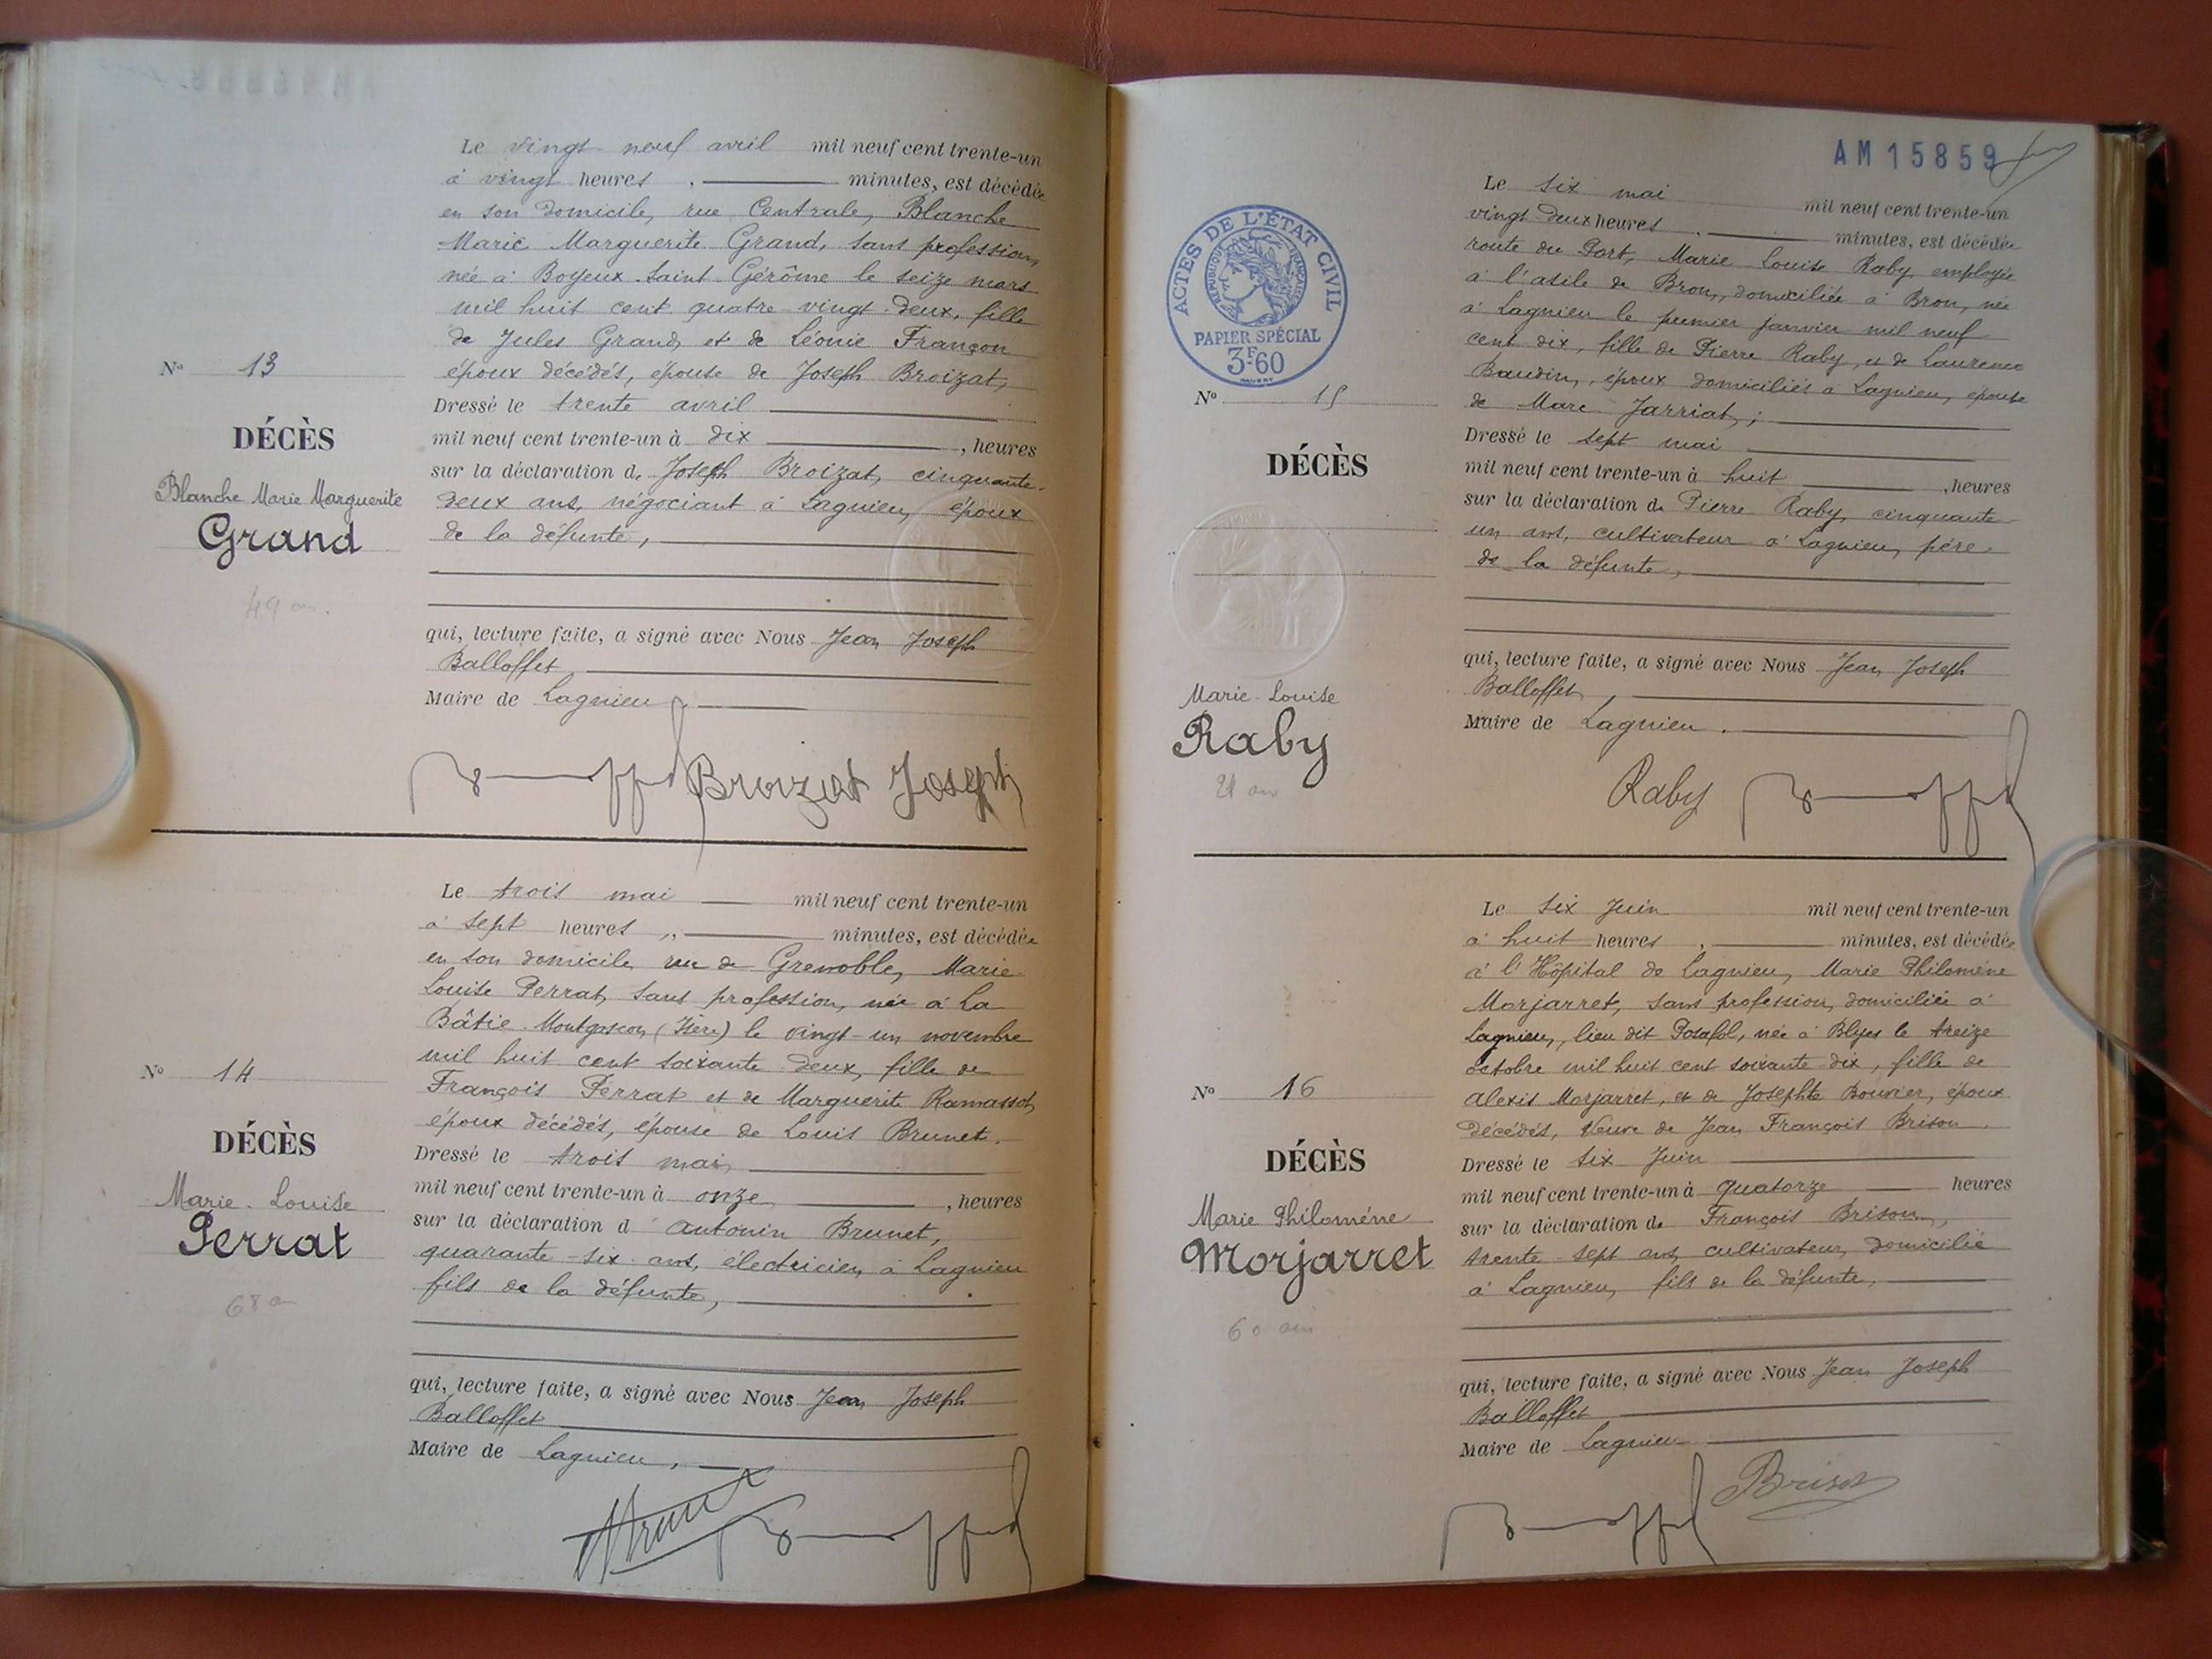 Le vingt neuf avril mil neuf cent trente-un
à vingt heures , minutes, est décédée
en son domicile, rue Centrale, Blanche
Marie Marguerite Grand, sans profession,
née à Boyeux-Saint-Gérôme le seize mars
mil huit cent quatre vingt-deux, fille
de Jules Grand, et de Léonie Françon
époux décédés, épouse de Joseph Broizat,
Nº 13
DÉCÈS
Blanche Marie Marguerite
Grand
49 an.
Dressé le trente avril
mil neuf cent trente-un à dix , heures
sur la déclaration de Joseph Broizat, cinquante-
deux ans, négociant à Lagnieu, époux
de la défunte,
qui, lecture faite, a signé avec Nous Jean Joseph
Balloffet
Maire de Lagnieu,
Broizat Joseph
Le trois mai mil neuf cent trente-un
à sept heures ,, minutes, est décédée
en son domicile rue de Grenoble, Marie-
Louise Perrat, sans profession, née à La
Bâtie-Montgascon (Isère) le vingt-un novembre
mil huit cent soixante deux, fille de
François Perrat et de Marguerite Ramassot,
époux décédés, épouse de Louis Brunet.
Nº 14
DÉCÈS
Marie-Louise
Perrat
68 an
Dressé le trois mai,
mil neuf cent trente-un à onze , heures
sur la déclaration d' Antonin Brunet,
quarante-six ans, électricien, à Lagnieu
fils de la défunte,
qui, lecture faite, a signé avec Nous Jean Joseph
Balloffet
Maire de Lagnieu,
AM15859
ACTES DE L'ÉTAT CIVIL
RÉPUBLIQUE FRANÇAISE
PAPIER SPÉCIAL
3F60
Le six mai mil neuf cent trente-un
vingt deux heures , minutes, est décédée
route du Port, Marie-Louise Raby, employée
à l'asile de Bron, domiciliée à Bron, née
à Lagnieu le premier janvier mil neuf
cent dix, fille de Pierre Raby, et de Laurence
Baudin, époux domiciliés à Lagnieu, épouse
de Marc Jarriat, ;
Nº 15
DÉCÈS
Marie-Louise
Raby
21 ans
Dressé le sept mai
mil neuf cent trente-un à huit , heures
sur la déclaration de Pierre Raby, cinquante-
un ans, cultivateur à Lagnieu, père
de la défunte,
qui, lecture faite, a signé avec Nous Jean Joseph
Balloffet,
Maire de Lagnieu.
Raby
Le six Juin mil neuf cent trente-un
à huit heures , minutes, est décédée
à l'Hôpital de Lagnieu, Marie Philomène
Morjarret, sans profession, domiciliée à
Lagnieu, lieu dit Posafol, née à Blyes le treize
octobre mil huit cent soixante dix, fille de
Alexis Morjarret, et de Josephte Bouvier, époux
décédés, Veuve de Jean François Brison.
Nº 16
DÉCÈS
Marie Philomène
Morjarret
60 ans
Dressé le six Juin
mil neuf cent trente-un à quatorze heures
sur la déclaration de François Brison,
trente-sept ans, cultivateur, domicilié
à Lagnieu, fils de la défunte,
qui, lecture faite, a signé avec Nous Jean Joseph
Balloffet
Maire de Lagnieu
Brison